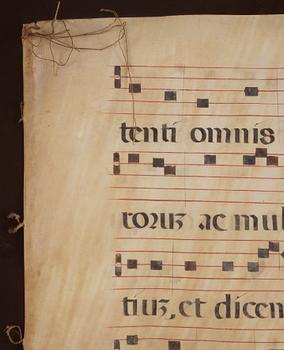 tenti omnis
toꝛuꝫ ac mul
tiuꝫ, et dicen